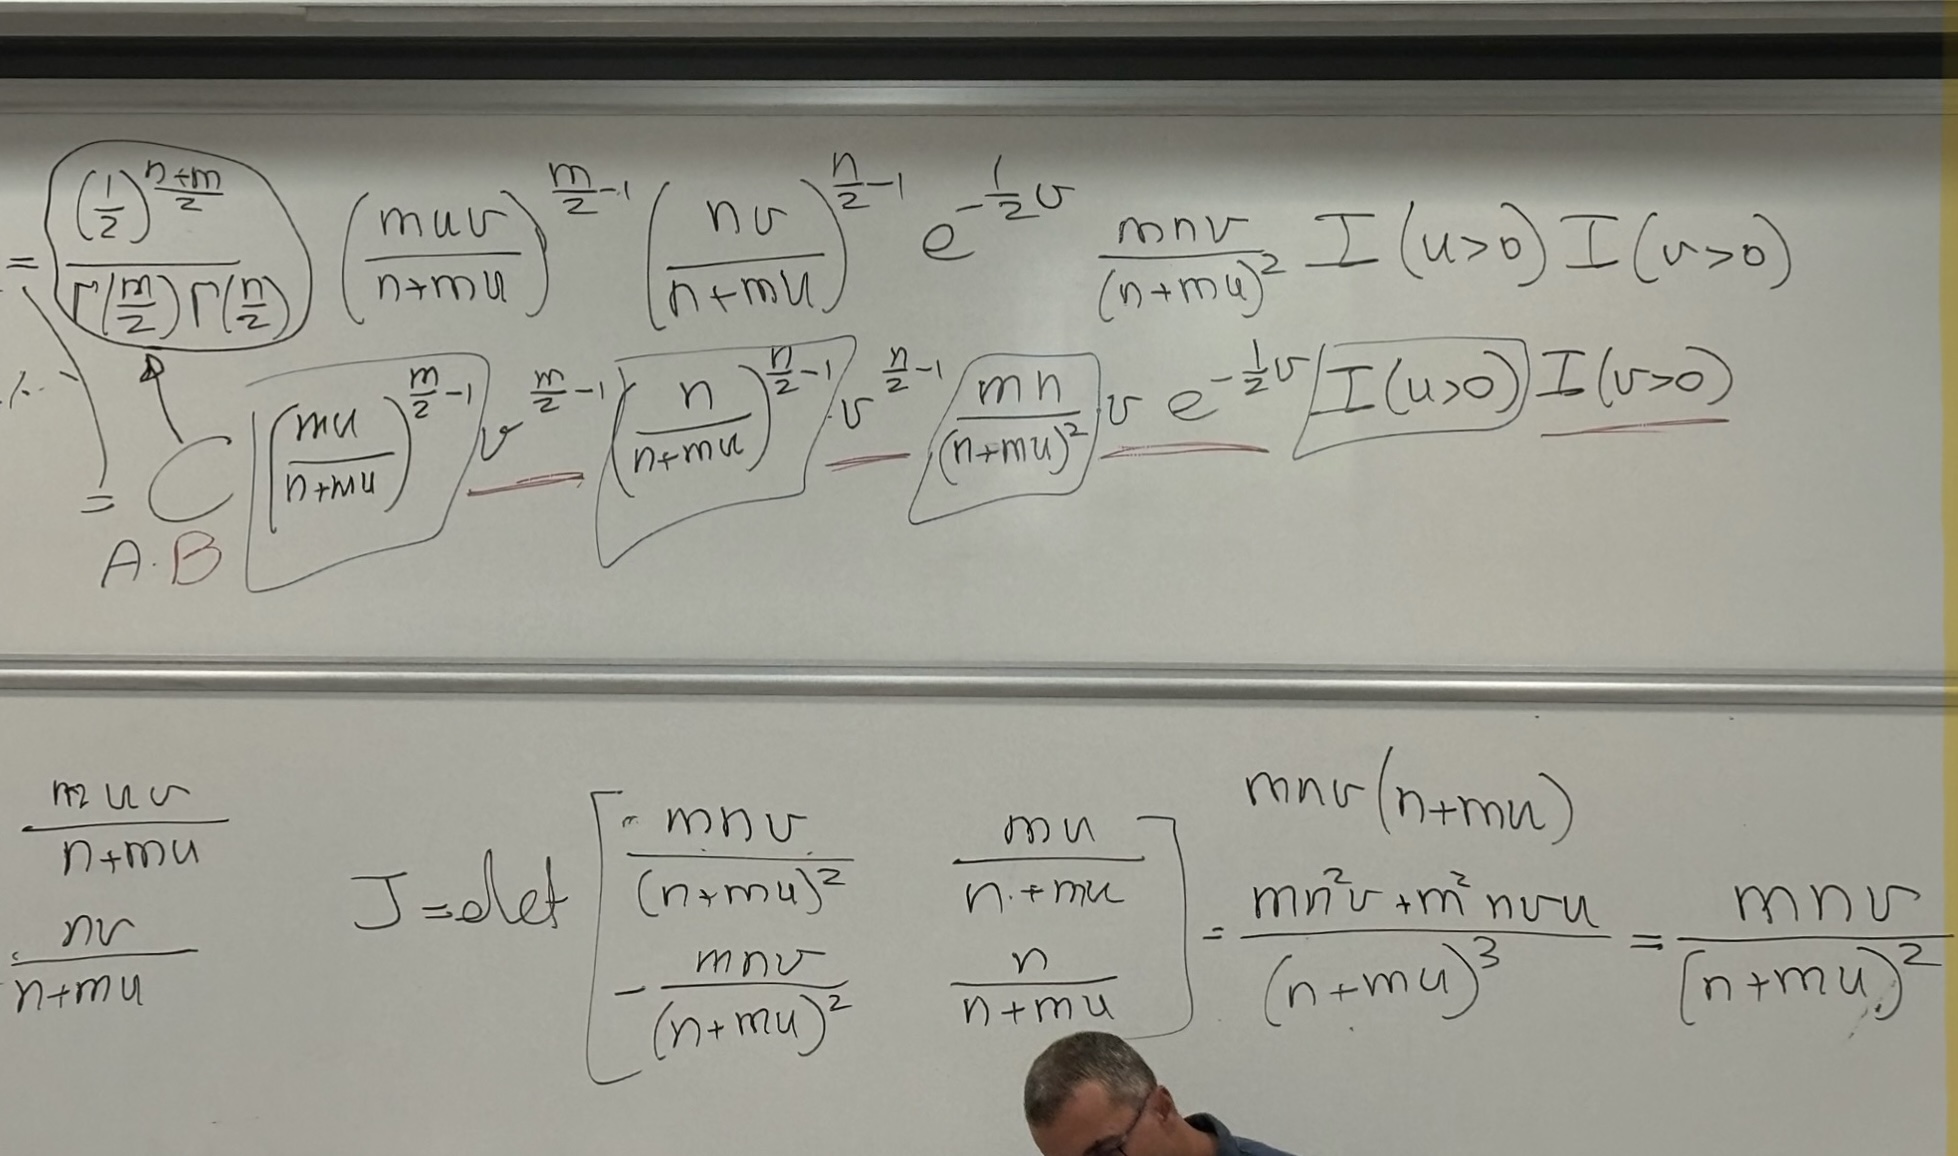 = (1/2)^((n+m)/2) / (Γ(m/2) Γ(n/2)) (muv/(n+mu))^(m/2 -1) (nv/(n+mu))^(n/2 -1) e^(-1/2 v) mnv/(n+mu)^2 I(u>0) I(v>0)
= C (mu/(n+mu))^(m/2 -1) v^(m/2 -1) (n/(n+mu))^(n/2 -1) · v^(n/2 -1) mn/(n+mu)^2 v e^(-1/2 v) I(u>0) I(v>0)
A·B
muv/(n+mu)
nv/(n+mu)
J = det [ mnv/(n+mu)^2 mu/(n+mu)
-mnv/(n+mu)^2 n/(n+mu) ]
mnv(n+mu)
= (mn^2v + m^2nvu)/(n+mu)^3 = mnv/(n+mu)^2